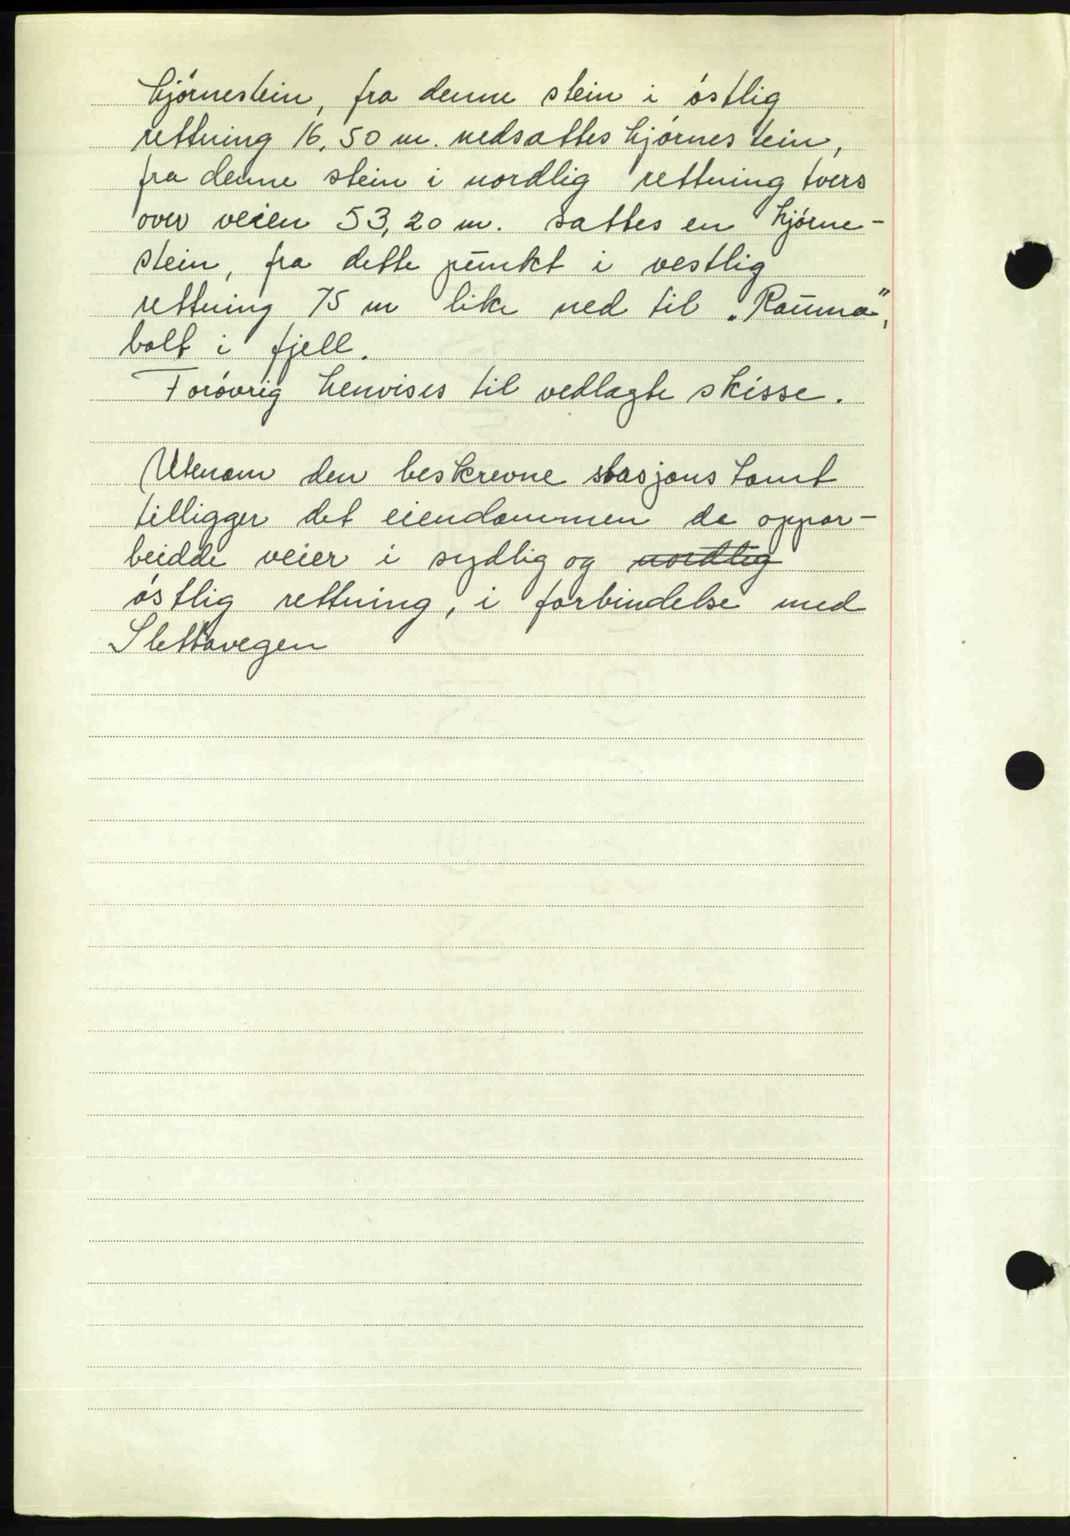 hjørnestein, fra denne stein i østlig
rettning 16,50 m. nedsattes hjørnestein,
fra denne stein i nordlig rettning tvers
over veien 53,20 m. sattes en hjørne-
stein, fra dette punkt i vestlig
rettning 75 m like ned til „Rauma",
bolt i fjell.
Forøvrig henvises til vedlagte skisse.
Utenom den beskrevne stasjonstomt
tilligger det eiendommen de oppar-
beidde veier i sydlig og nordlig
østlig rettning, i forbindelse med
Slettavegen